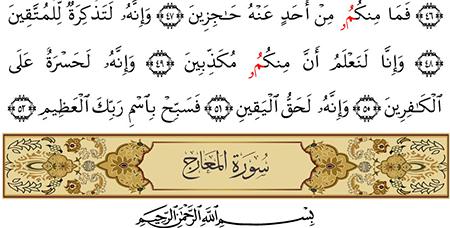 ﴿٤٦﴾ فَمَا مِنكُمُۥ مِنْ أَحَدٍ عَنْهُ حَـٰجِزِينَ ﴿٤٧﴾ وَإِنَّهُۥ لَتَذْكِرَةٌ لِّلْمُتَّقِينَ
﴿٤٨﴾ وَإِنَّا لَنَعْلَمُ أَنَّ مِنكُمُۥ مُكَذِّبِينَ ﴿٤٩﴾ وَإِنَّهُۥ لَحَسْرَةٌ عَلَى
الْكَـٰفِرِينَ ﴿٥٠﴾ وَإِنَّهُۥ لَحَقُّ الْيَقِينِ ﴿٥١﴾ فَسَبِّحْ بِاسْمِ رَبِّكَ الْعَظِيمِ ﴿٥٢﴾
سُورَةُ المَعَارِجِ
بِسْمِ اللَّهِ الرَّحْمَٰنِ الرَّحِيمِ